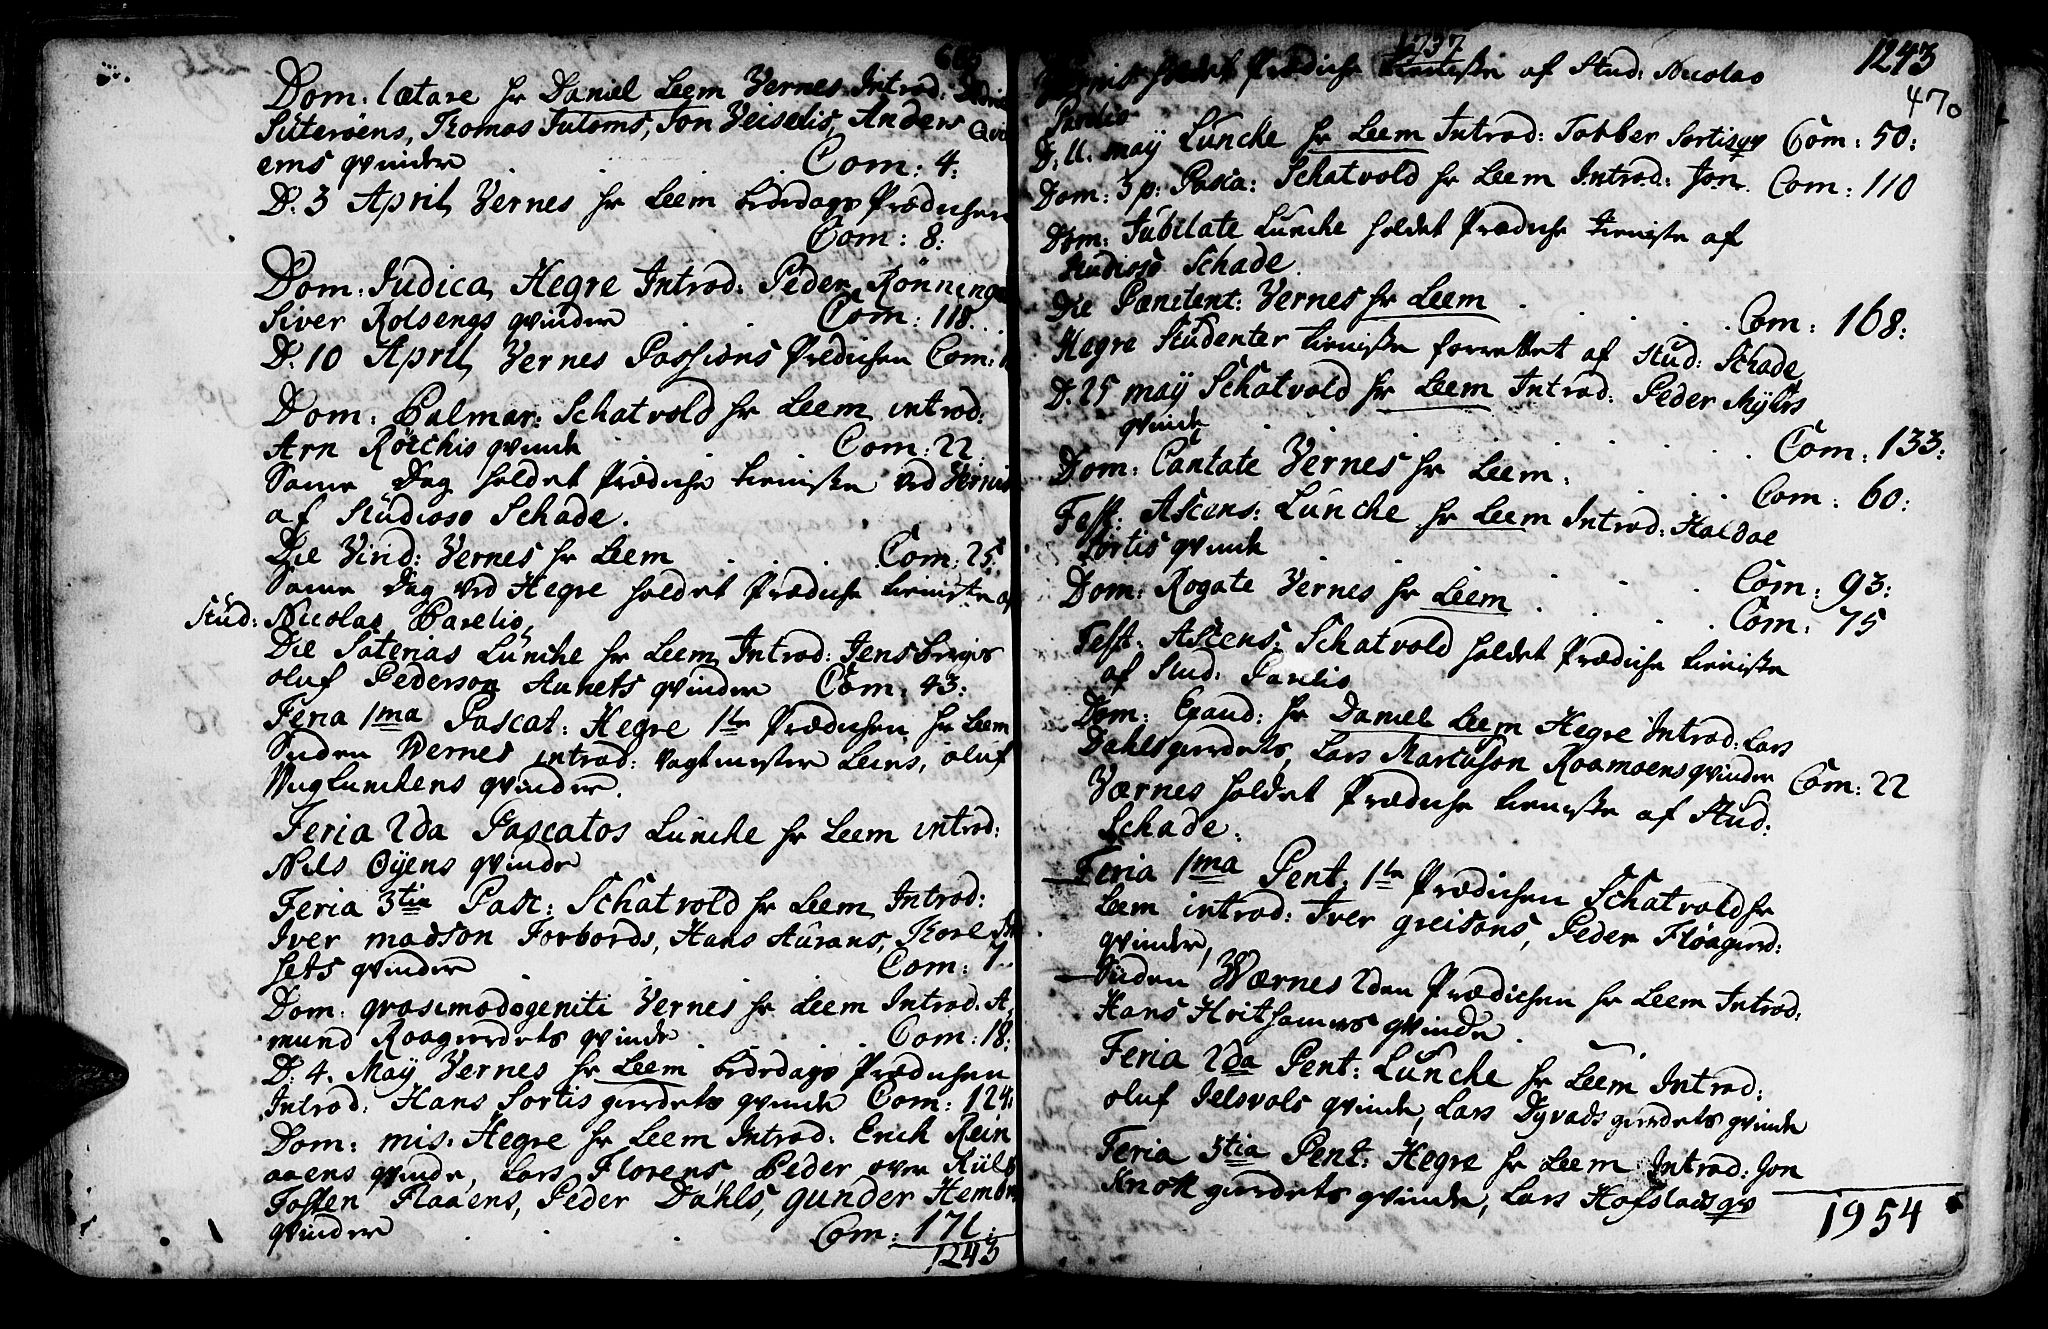 Dom: lætare hr Daniel Leem Vernes Introd:
Süterøens, Thomas Tutoms, Jon Veiselis, Anders
ems qvinder Com: 4:
D. 3 April Vernes hr Leem bededags Prædichen
Com: 8:
Dom: Judica, Hegre Introd: Peder Rönninge
Siver Rolsengs qvinder . . Com: 118. . .
D. 10 April Vernes Passions Prædichen Com:
Dom: Palmar: Schatvold hr Leem introd:
Arn Röechis qvinde . Com: 22
Same Dag holdet Prædiche tieniste ved Vernis
af Studioso Schade.
Die Virid: Vernes hr Leem . . . Com: 25:
Same Dag ved Hegre holdet Prædiche tieniste af
Stud: Nicolao Parelio,
Die Saterias Lünche hr Leem Introd: Jens
oluf Pederson Aunets qvinder Com: 43:
Feria 1ma Pascat: Hegre 1te Prædichen hr Leem
Siden Wernes introd: Vagtmester Leins, oluf
Wuglunchens qvinder.
Feria 2da Pascatos Lunche hr Leem introd:
Nils Öyens qvinde
Feria 3tia Pasc: Schatvold hr Leem Introd:
Iver madson Forbords, Hans Aurans, Tore
sets qvinder . . Com: 7..
Dom: qvasimodogeniti Vernes hr Leem Introd: A,
mund Raagierdets qvinde . . . . Com: 18:
D: 4. Maÿ Vernes hr Leem bededags Prædichen
Introd: Hans Sortis gierdets qvinde Com: 124:
Dom: mis: Hegre hr Leem Introd: Erich Rein
aaens qvinde, Lars Florens, Peder over
Josten Flaaens, Peder Dahls, gunder
qvinder . . . Com: 171:
1243
1737
1243
holdet Prædiche tieniste af Stud: Nicolao
470
Parelio
D. 11. maÿ Lünche hr Leem Introd: Tobber Sortis qv Com: 50:
Dom: 3 p: Pasca: Schatvold hr Leem Introd: Jon. Com: 110
Dom: Jubilate Lunche holdet Prædiche tieniste af
Studioso Schade.
Die Pænitent: Vernes hr Leem . . . . Com: 168:
Hegre Studenter tieniste forrettet af Stud: Schade
D. 25 maÿ Schatvold hr Leem Introd: Peder Myhrs
qvinde . . . . Com: 133:
Dom: Cantate Vernes hr Leem . . . . Com: 60:
Fest: Ascens: Lunche hr Leem Introd: Haldoe
Sortis qvinde . . . . Com: 93:
Dom: Rogate Vernes hr Leem . . . . Com: 75
Fest: Ascens: Schatvold holdet Prædiche tieniste
af Stud: Parelio
Dom: Exaud: hr Daniel Leem Hegre Introd: Lars
Dahlsgierdets, Lars Marcuson Roamoens qvinder Com: 22
Værnes holdet Prædiche tieneste af Stud:
Schade:
Feria 1ma Pent: 1te Prædichen Schatvold hr
Leem introd: Iver greisons, Peder Fløagierd:
qvinder,
Siden Wærnes 2den Prædichen hr Leem Introd:
Hans qvinde.
Feria 2da Pent: Lünche hr Leem Introd:
oluf Ielsvols qvinde, Lars Dyvadsgierdets qvinde
Feria 3tia Pent: Hegre hr Leem Introd: Jon
Knott gierdets qvinde, Lars Hofstads qv
1954